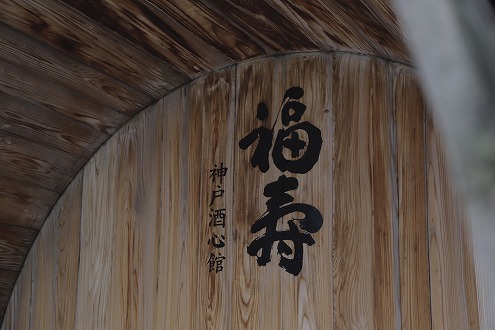 福寿
神戸酒心館